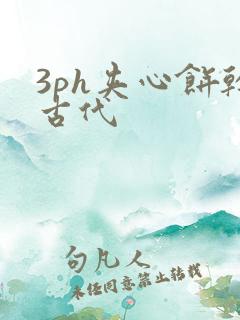 3ph夹心餅乾
古代
句凡人
未经同意禁止转载